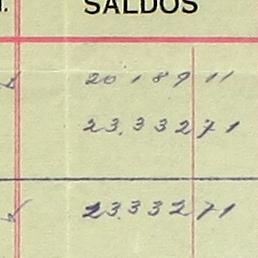 SALDOS
20 189 11
23.332 71
23332 71